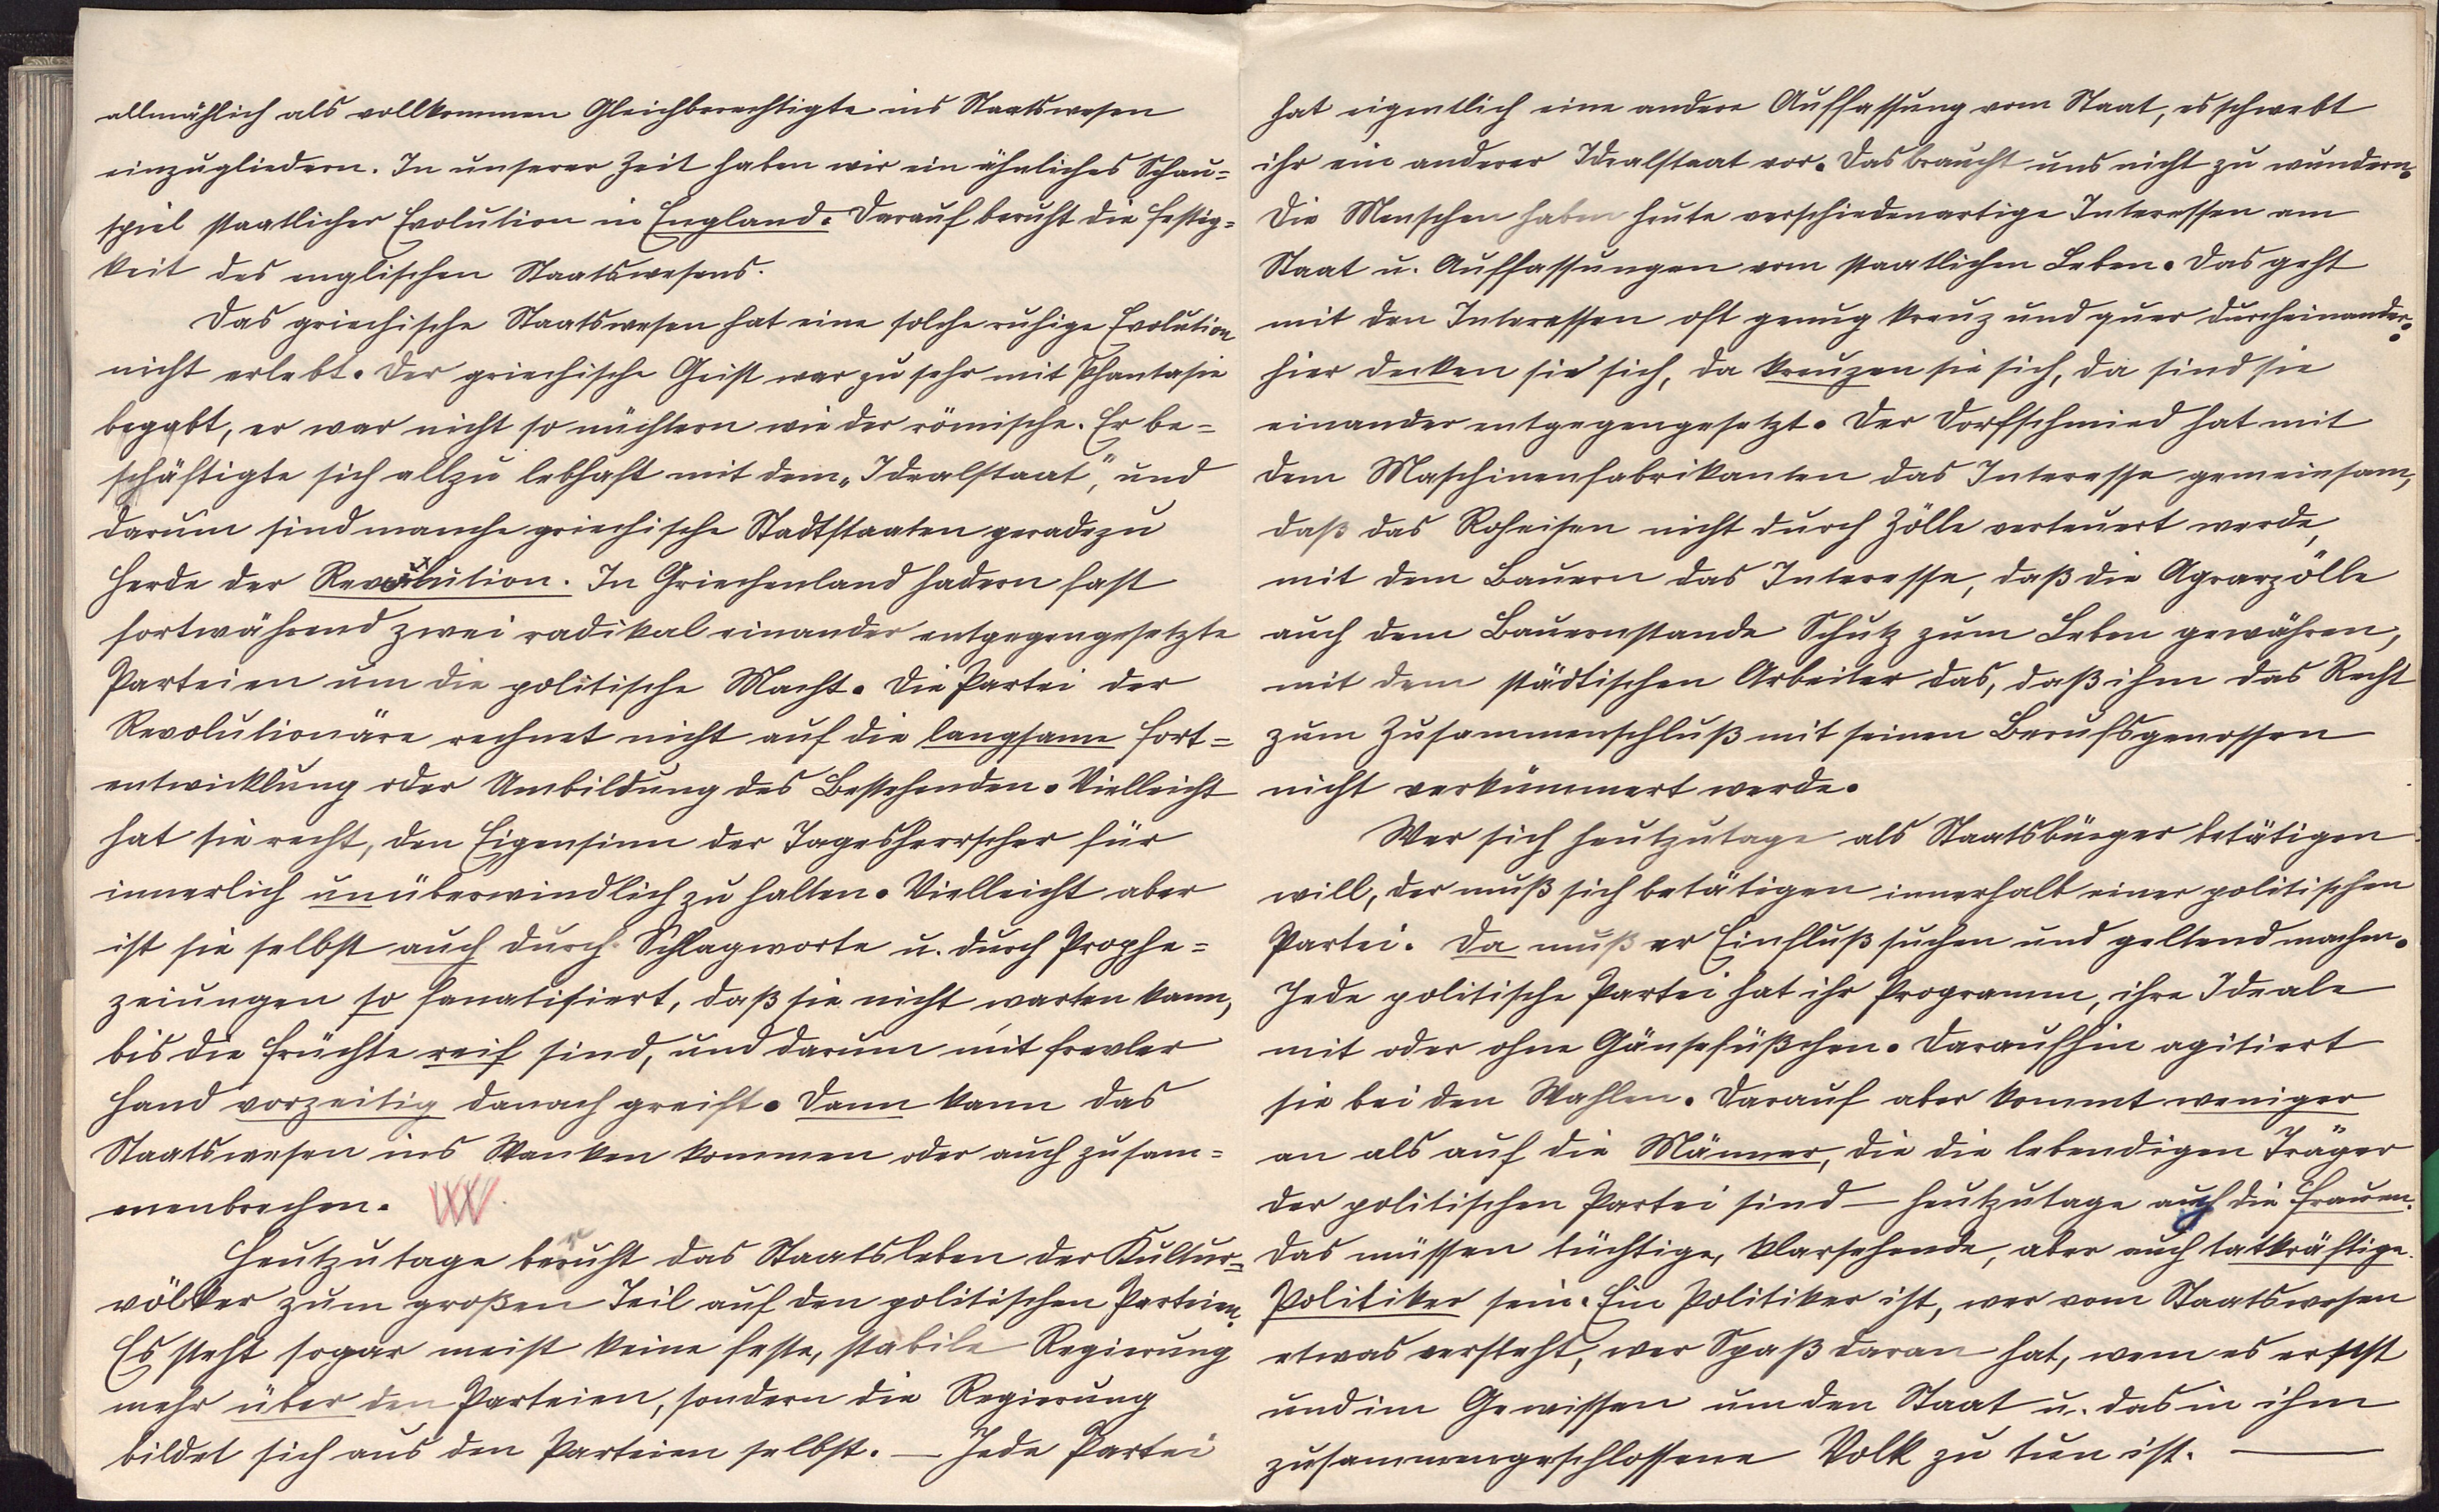 allmählich als vollkommen Gleichberechtigte ins Staatswesen
einzugliedern. In unserer Zeit haben wir ein ähnliches Schau=
spiel staatlicher Evolution in England. Darauf beruht die Festig=
keit des englischen Staatswesens.
Das griechische Staatswesen hat eine solche ruhige Evolution
nicht erlebt. Der griechische Geist war zu sehr mit Phantasie
begabt, er war nicht so nüchtern wie der römische. Er be=
schäftigte sich allzu lebhaft mit dem „Idealstaat“, und
darum sind manche griechische Stadtstaaten geradezu
Herde der Revolution. In Griechenland hadern fast
fortwährend zwei radikal einander entgegengesetzte
Parteien um die politische Macht. Die Partei der
Revolutionäre rechnet nicht auf die langsame Fort=
entwicklung oder Umbildung des Bestehenden. Vielleicht
hat sie recht, den Eigensinn der Tagesherrscher für
innerlich unüberwindlich zu halten. Vielleicht aber
ist sie selbst auch durch Schlagworte u. durch Prophe=
zeiungen so fanatisiert, daß sie nicht warten kann,
bis die Früchte reif sind, und darum mit frevler
Hand vorzeitig danach greift. Dann kann das
Staatswesen ins Wanken kommen oder auch zusam=
menbrechen.
Heutzutage beruht das Staatsleben der Kultur=
völker zum großen Teil auf den politischen Parteien.
Es steht sogar meist keine feste, stabile Regierung
mehr über den Parteien, sondern die Regierung
bildet sich aus den Parteien selbst. — Jede Partei
hat eigentlich eine andere Auffassung vom Staat, es schwebt
ihr ein anderer Idealstaat vor. Das braucht uns nicht zu wundern.
Die Menschen haben heute verschiedenartige Interessen am
Staat u. Auffassungen vom staatlichen Leben. Das geht
mit den Interessen oft genug kreuz und quer durcheinander.
Hier decken sie sich, da kreuzen sie sich, da sind sie
einander entgegengesetzt. Der Dorfschmied hat mit
dem Maschinenfabrikanten das Interesse gemeinsam,
daß das Roheisen nicht durch Zölle verteuert werde,
mit dem Bauern das Interesse, daß die Agrarzölle
auch dem Bauernstande Schutz zum Leben gewähren,
mit dem städtischen Arbeiter das, daß ihm das Recht
zum Zusammenschluß mit seinen Berufsgenossen
nicht verkümmert werde.
Wer sich heutzutage als Staatsbürger betätigen
will, der muß sich betätigen innerhalb einer politischen
Partei. Da muß er Einfluß suchen und geltend machen.
Jede politische Partei hat ihr Programm, ihre Ideale
mit oder ohne Gänsefüßchen. Daraufhin agitiert
sie bei den Wahlen. Darauf aber kommt weniger
an als auf die Männer, die die lebendigen Träger
der politischen Partei sind — heutzutage auch die Frauen.
Das müssen tüchtige, klarsehende, aber auch tatkräftige
Politiker sein. Ein Politiker ist, wer vom Staatswesen
etwas versteht, wer Spaß daran hat, wem es ernst
und im Gewissen um den Staat u. das in ihm
zusammengeschlossene Volk zu tun ist. —